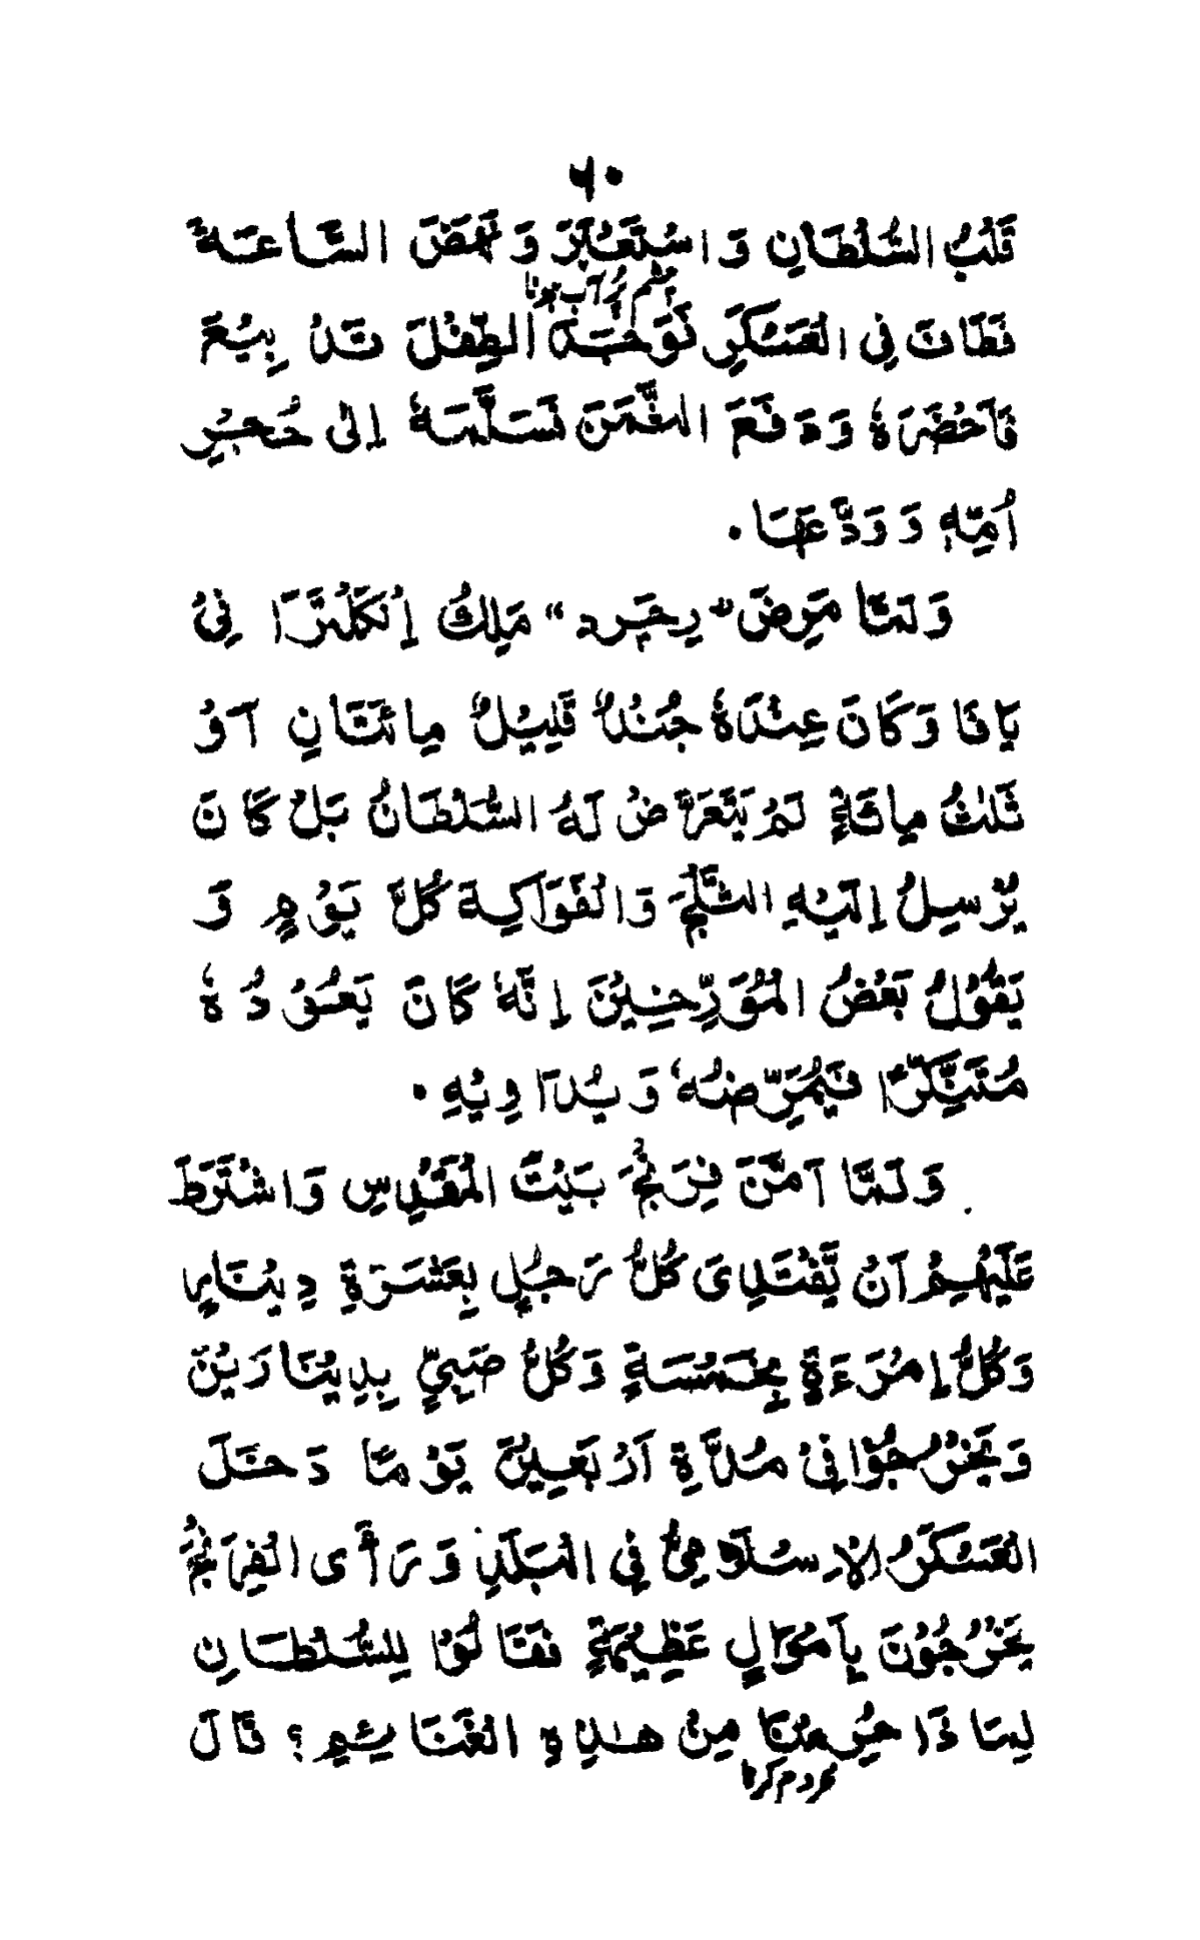 ٦٠
قَلْبُ السُّلْطَانِ وَاسْتَعْبَرَ وَنَهَضَ السَّاعَةَ
چشم پُر آب ہونا
فَطَافَ فِى الْعَسْكَرِ فَوَجَدَ الطِّفْلَ قَدْ بِيْعَ
فَاَحْضَرَهٗ وَدَفَعَ الثَّمَنَ فَسَلَّمَهٗ اِلٰى حُجْرِ
اُمِّهٖ وَوَدَّعَهَا ۰
وَلَمَّا مَرِضَ "رِجَرد" مَلِكُ اِنْكَلْتَرَّا فِىْ
يَافَا وَكَانَ عِنْدَهٗ جُنْدٌ قَلِيْلٌ مِائَتَانِ اَوْ
ثَلٰثُ مِائَةٍ لَمْ يَتَعَرَّضْ لَهُ السُّلْطَانُ بَلْ كَانَ
يُرْسِلُ اِلَيْهِ الثَّلْجَ وَالْفَوَاكِهَ كُلَّ يَوْمٍ وَ
يَقُوْلُ بَعْضُ الْمُؤَرِّخِيْنَ اِنَّهٗ كَانَ يَعُوْدُهٗ
مُتَنَكِّرًا فَيُمَرِّضُهٗ وَيُدَاوِيْهِ ۰
وَلَمَّا اَمَّنَ فِرَنْجُ بَيْتَ الْمُقَدِّسِ وَاشْتَرَطَ
عَلَيْهِمْ اَنْ يَّفْتَدِىَ كُلُّ رَجُلٍ بِعَشَرَةِ دِيْنَارٍ
وَكُلُّ اِمْرَءَةٍ بِخَمْسَةٍ وَكُلُّ صَبِيٍّ بِدِيْنَارَيْنِ
وَيَخْرُجُوْا فِىْ مُدَّةِ اَرْبَعِيْنَ يَوْمًا دَخَلَ
الْعَسْكَرُ الْاِسْلَامِىُّ فِى الْبَلَدِ وَرَأَى الْفِرَنْجُ
يَخْرُجُوْنَ بِاَمْوَالٍ عَظِيْمَةٍ فَقَالُوْا لِلسُّلْطَانِ
لِمَاذَا حُرِمْنَا مِنْ هٰذِهِ الْغَنَائِمِ؟ قَالَ
محروم کرنا